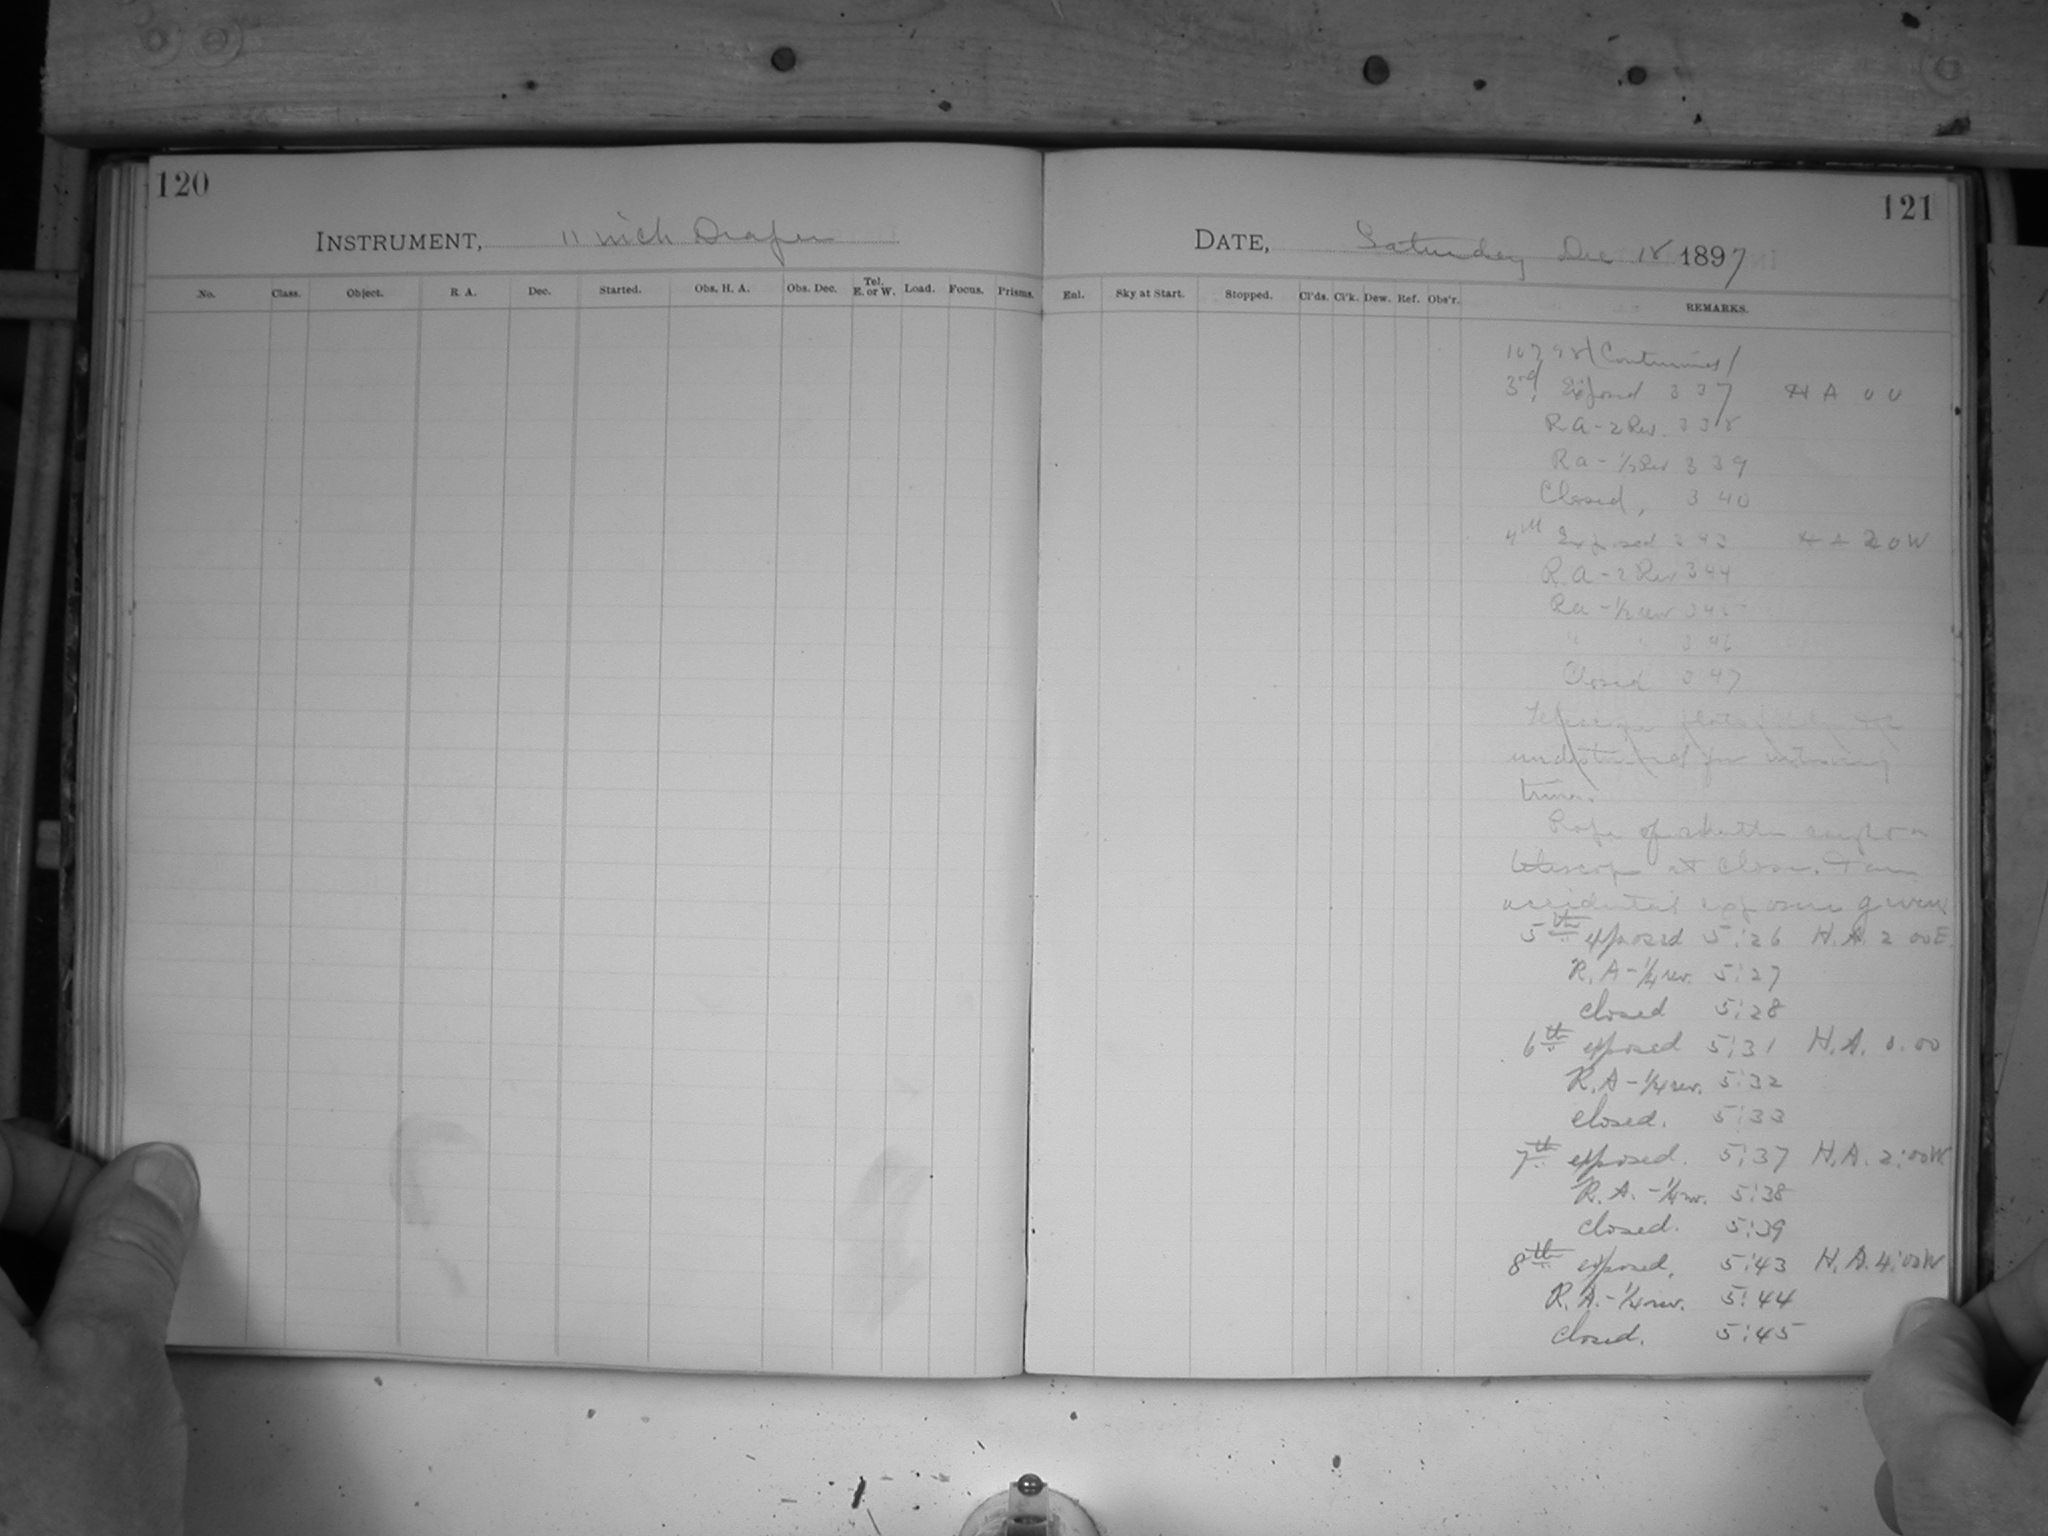 120
INSTRUMENT, 11 inch Draper
No. Class. Object. R. A. Dec. Started. Obs. H. A. Obs. Dec. Tel. E. or W. Load. Focus. Prisms.
121
DATE, Saturday Dec 18 1897
Enl. Sky at Start. Stopped. Cl'ds. Cl'k. Dew. Ref. Obs'r. REMARKS.
(Continued)
3rd, Exposed 3 37 H A 0 0
R A - 2 Rev. 3 38
Ra - 1/2 Rev 3 39
Closed, 3 40
4th Exposed 3 43 H A 2 0 W
R. A - 2 Rev 3 44
Ra - 1/2 Rev 3 45
" " 3 46
Closed 3 47
time.
Rope of shutter caught on
telescope at close.
accidental exposure given
5th exposed 5:26 H.A. 2 00E.
R. A - 1/4 rev. 5:27
closed 5:28
6th exposed 5:31 H.A. 0.00
R. A - 1/4 rev. 5:32
closed. 5:33
7th exposed. 5:37 H.A. 2:00W
R. A. - 1/4 rev. 5:38
closed. 5:39
8th exposed, 5:43 H.A. 4:00W
R. A. - 1/4 rev. 5:44
closed. 5:45